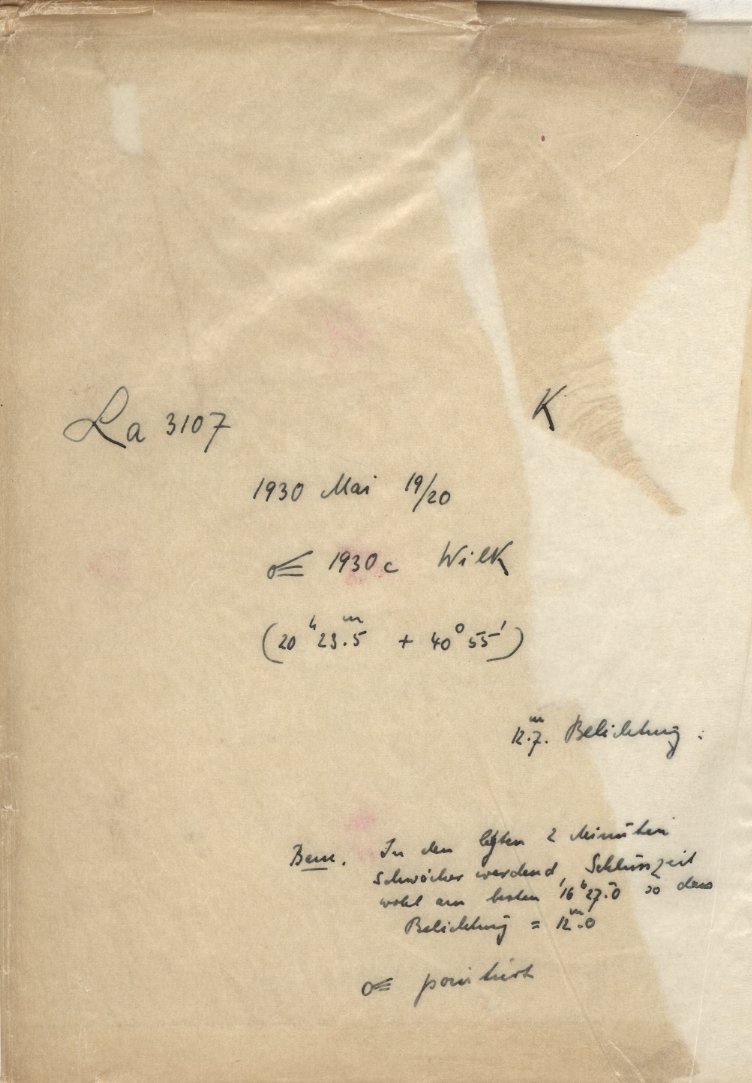 La 3107 K
1930 Mai 19/20
☄ 1930c Wilk
(20ʰ 23ᵐ.5 + 40° 55')
12ᵐ.7. Belichtung.
Bem. In den letzten 2 Minuten
schwächer werdend, Schlusszeit
wohl am besten 16ʰ 27ᵐ.0 so dass
Belichtung = 12ᵐ.0
☄ pointiert